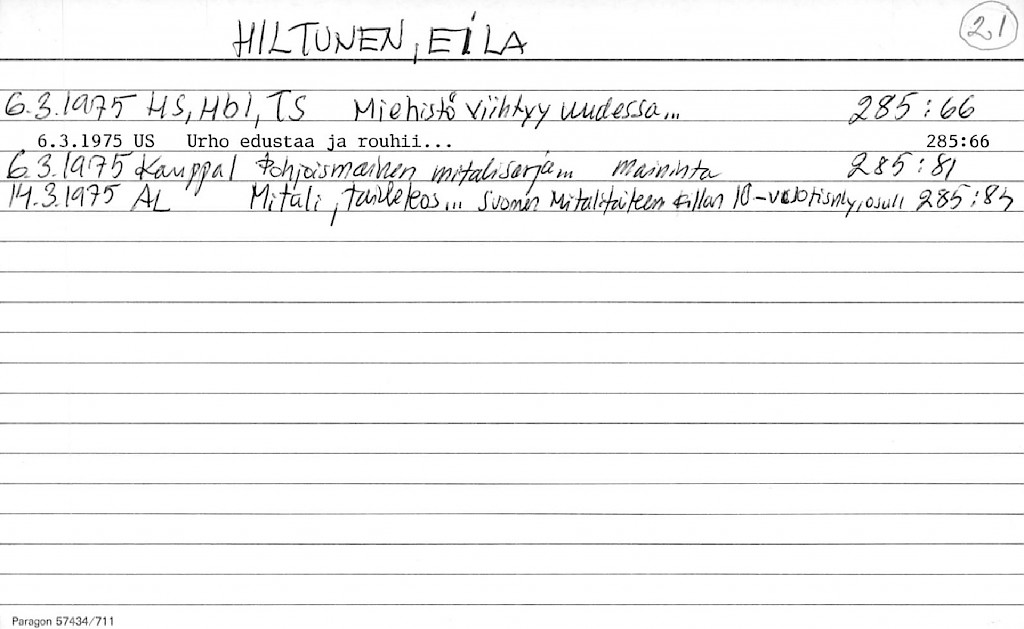 HILTUNEN, EILA
21
6.3.1975 HS, Hbl, TS Miehistö viihtyy uudessa... 285:66
6.3.1975 US Urho edustaa ja rouhii... 285:66
6.3.1975 Kauppal Pohjoismainen mitalisarja... maininta 285:81
14.3.1975 AL Mitali, taideteos... Suomen Mitalitaiteen killan 10-vuotisnäy, osall 285:85
Paragon 57434/711